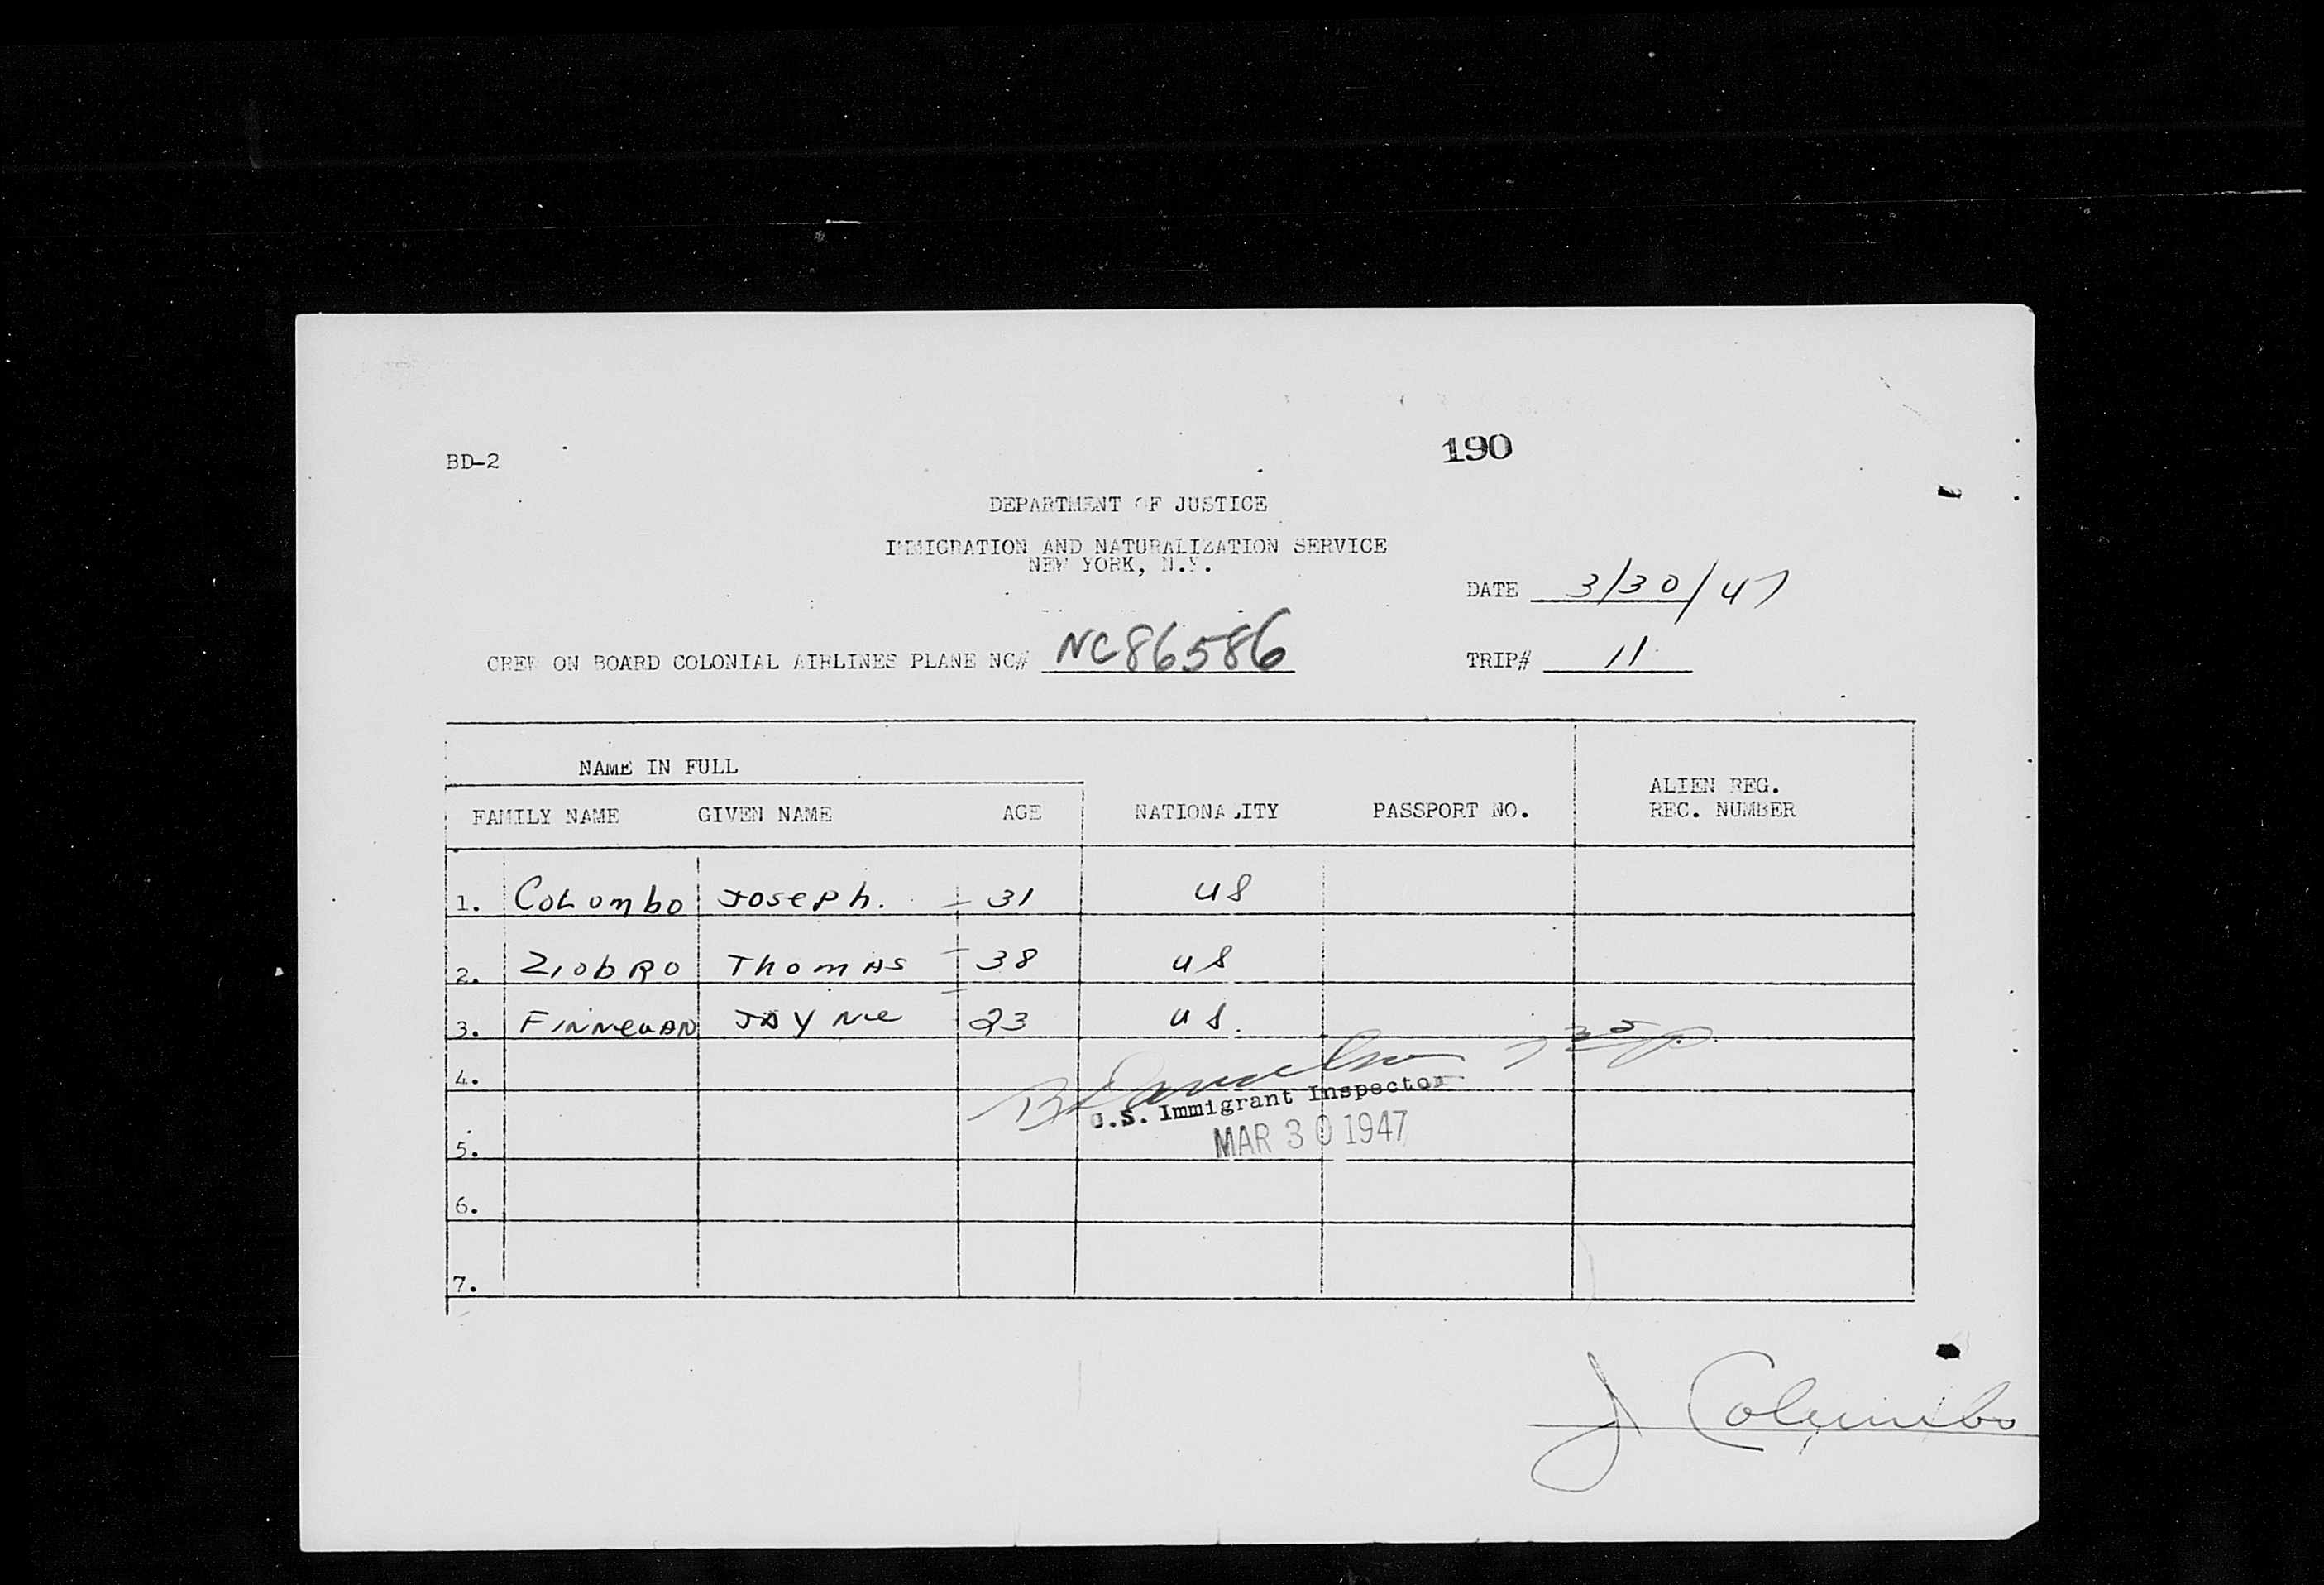 190
BD-2
DEPARTMENT OF JUSTICE
IMMIGRATION AND NATURALIZATION SERVICE
NEW YORK, N.Y.
DATE 3/30/47
CREW ON BOARD COLONIAL AIRLINES PLANE NC# NC86586 TRIP# 11
NAME IN FULL
ALIEN REG.
FAMILY NAME GIVEN NAME AGE NATIONALITY PASSPORT NO. REC. NUMBER
1. Colombo Joseph. 31 US
2. Ziobro Thomas 38 US
3. Finnegan Jayne 23 US.
4.
U.S. Immigrant Inspector
MAR 30 1947
5.
6.
7.
J Columbo